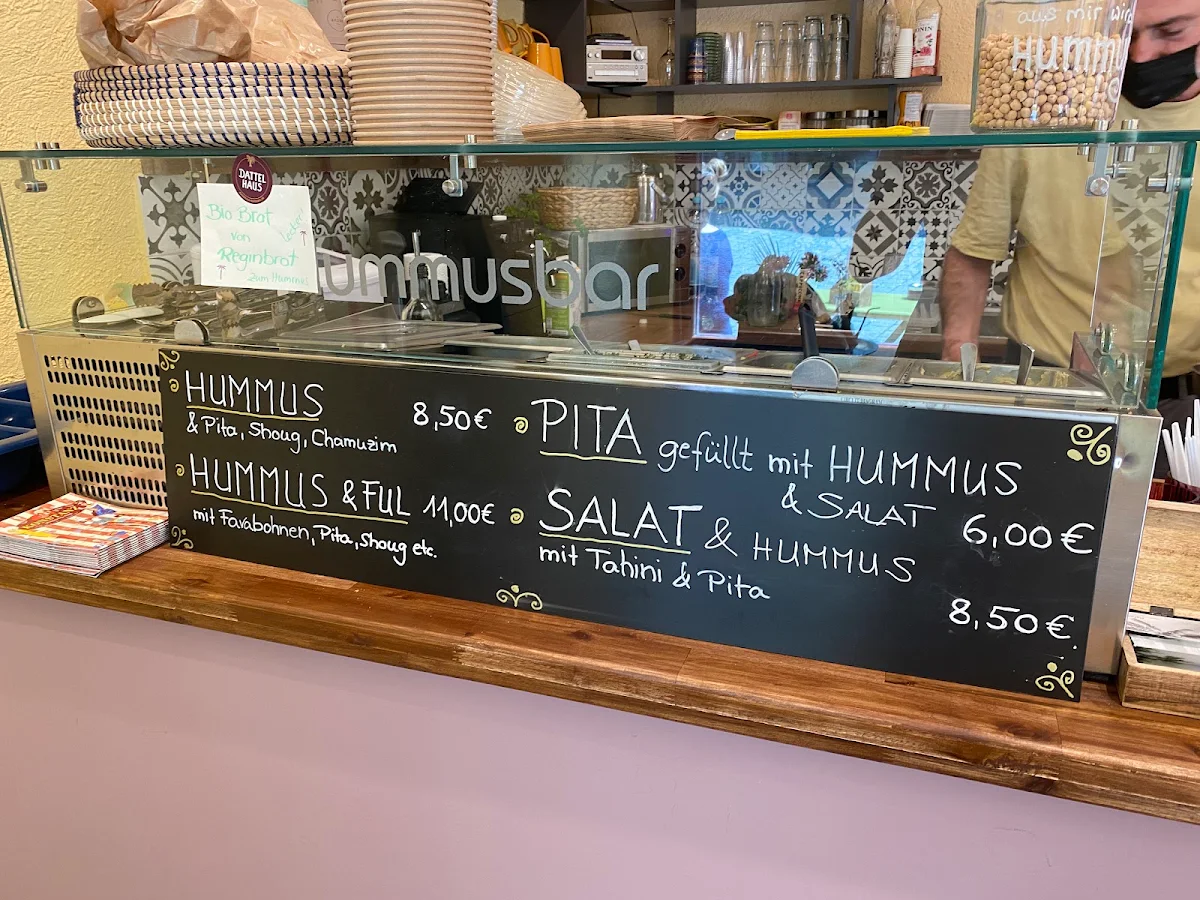 aus mir wird
Hummu
DATTEL
HAUS
Bio Brot
von
Reginbrot
zum Hummus
ummusbar
HUMMUS 8,50€
& Pita, Shoug, Chamuzim
HUMMUS & FUL 11,00€
mit Favabohnen, Pita, Shoug etc.
PITA gefüllt mit HUMMUS
& SALAT
6,00€
SALAT & HUMMUS
mit Tahini & Pita
8,50€